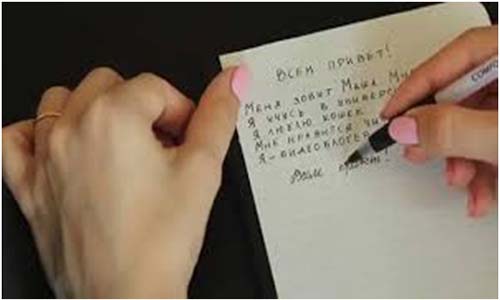 ВСЕМ ПРИВЕТ!
МЕНЯ ЗОВУТ МАША. МН
Я УЧУСЬ В УНИВЕРС
Я ЛЮБЛЮ КОШЕК
МНЕ НРАВИТСЯ ЧИ
Я - ВИДЕОБЛОГЕР
Всем привет!
COMFO